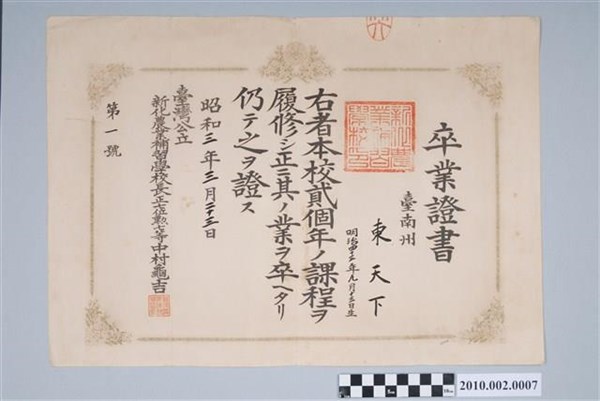 卒業證書
臺南州
東天下
明治四十三年九月十三日生
右者本校貳個年ノ課程ヲ
履修シ正ニ其ノ業ヲ卒ヘタリ
仍テ之ヲ證ス
昭和三年三月二十三日
臺灣公立
新化農業補習學校長正七位勲六等中村龜吉
第一號
2010.002.0007